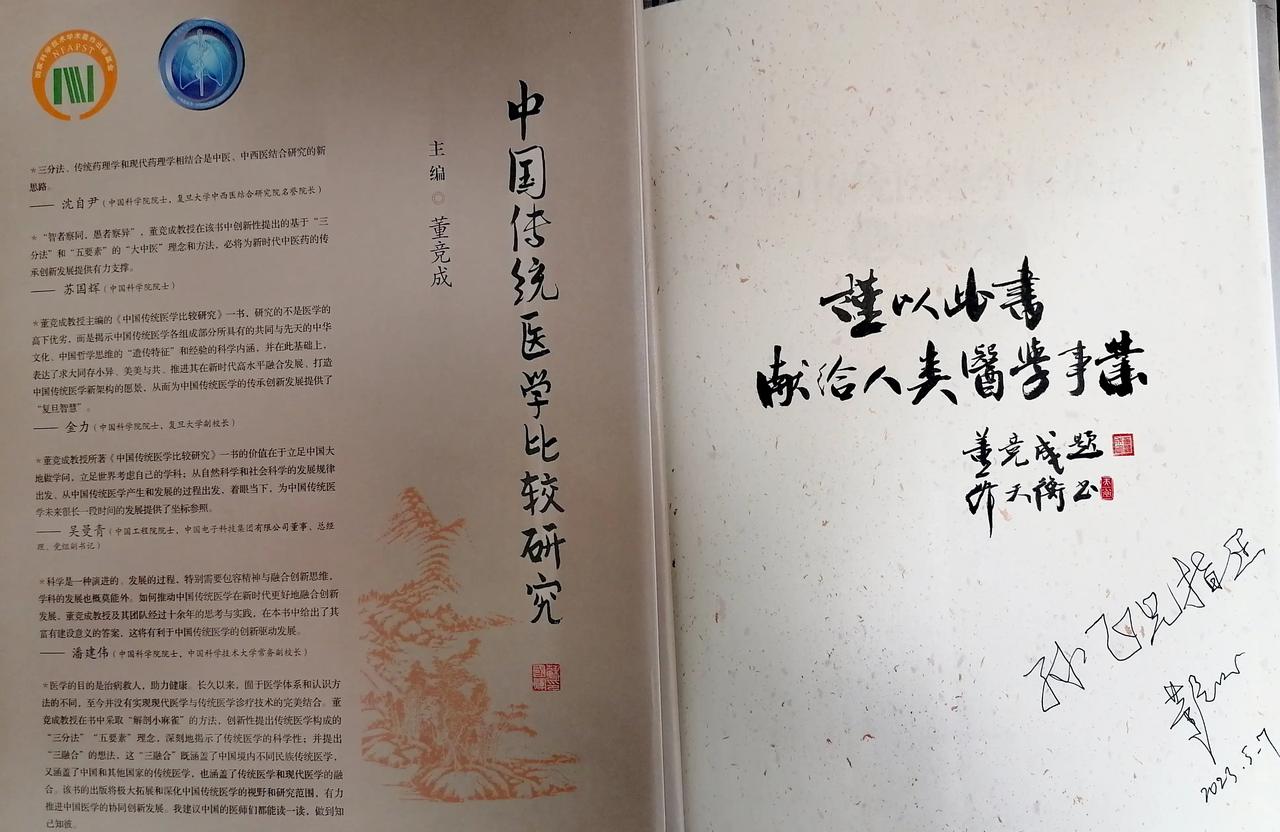 国家科学技术学术著作出版基金
NFAPST
*三分法、传统药理学和现代药理学相结合是中医、中西医结合研究的新
思路。
—— 沈自尹（中国科学院院士，复旦大学中西医结合研究院名誉院长）
*“智者察同，愚者察异”，董竞成教授在该书中创新性提出的基于“三
分法”和“五要素”的“大中医”理念和方法，必将为新时代中医药的传
承创新发展提供有力支撑。
—— 苏国辉（中国科学院院士）
*董竞成教授主编的《中国传统医学比较研究》一书，研究的不是医学的
高下优劣，而是揭示中国传统医学各组成部分所具有的共同与先天的中华
文化、中国哲学思维的“遗传特征”和经验的科学内涵，并在此基础上，
表达了求大同存小异、美美与共，推进其在新时代高水平融合发展、打造
中国传统医学新架构的愿景，从而为中国传统医学的传承创新发展提供了
“复旦智慧”。
—— 金力（中国科学院院士，复旦大学副校长）
*董竞成教授所著《中国传统医学比较研究》一书的价值在于立足中国大
地做学问，立足世界考虑自己的学科；从自然科学和社会科学的发展规律
出发、从中国传统医学产生和发展的过程出发，着眼当下，为中国传统医
学未来很长一段时间的发展提供了坐标参照。
—— 吴曼青（中国工程院院士，中国电子科技集团有限公司董事、总经
理、党组副书记）
*科学是一种演进的、发展的过程，特别需要包容精神与融合创新思维，
学科的发展也概莫能外。如何推动中国传统医学在新时代更好地融合创新
发展，董竞成教授及其团队经过十余年的思考与实践，在本书中给出了其
富有建设意义的答案，这将有利于中国传统医学的创新驱动发展。
—— 潘建伟（中国科学院院士，中国科学技术大学常务副校长）
*医学的目的是治病救人，助力健康。长久以来，囿于医学体系和认识方
法的不同，至今并没有实现现代医学与传统医学诊疗技术的完美结合。董
竞成教授在书中采取“解剖小麻雀”的方法，创新性提出传统医学构成的
“三分法”“五要素”理念，深刻地揭示了传统医学的科学性；并提出
“三融合”的想法，这“三融合”既涵盖了中国境内不同民族传统医学，
又涵盖了中国和其他国家的传统医学，也涵盖了传统医学和现代医学的融
合。该书的出版将极大拓展和深化中国传统医学的视野和研究范围，有力
推进中国医学的协同创新发展。我建议中国的医师们都能读一读，做到知
己知彼。
中国传统医学比较研究
主编◎董竞成
謹以此書
献给人类醫學事業
董竞成题
天衡书
孙飞兄指正
董
2023.5.7